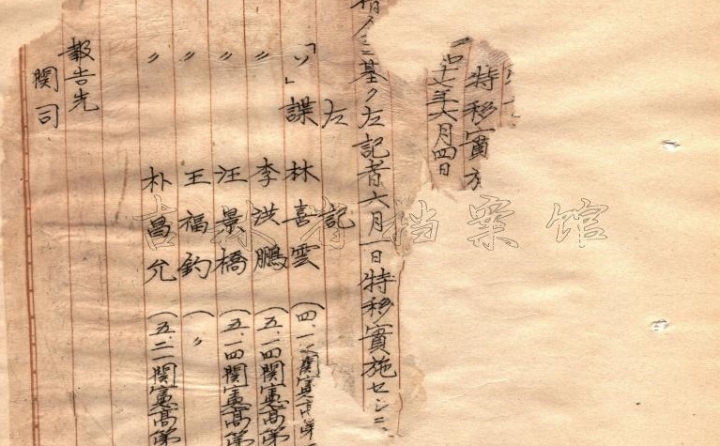 特移實方
四十七年六月四日
指ノミニ基ク左記者六月一日特移實施セシニ
左記
「ソ」諜 林喜雲
〃 李洪鵬 (五.一四関憲高第
〃 汪景橋 (五.一四関憲高第
〃 王福釣 ( 〃
〃 朴昌允 (五.二一関憲高第
報告先
関司
吉林省档案馆